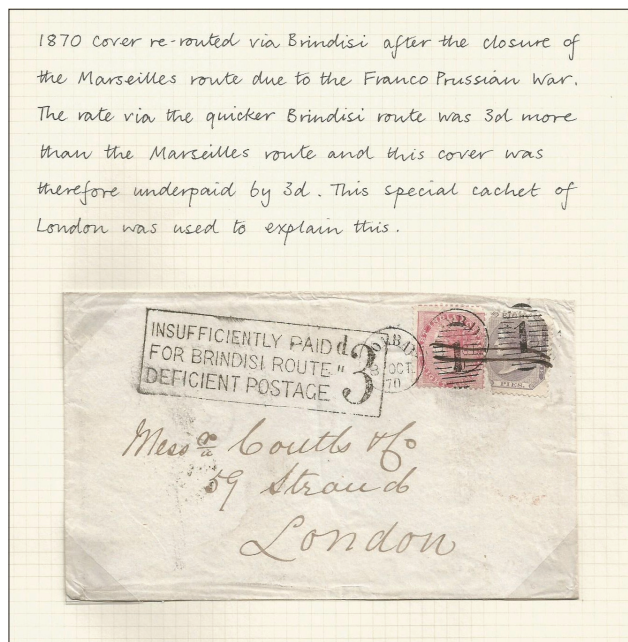 1870 cover re-routed via Brindisi after the closure of
the Marseilles route due to the Franco Prussian War.
The rate via the quicker Brindisi route was 3d more
than the Marseilles route and this cover was
therefore underpaid by 3d. This special cachet of
London was used to explain this.
INSUFFICIENTLY PAID d
FOR BRINDISI ROUTE "3
DEFICIENT POSTAGE
OCT.
70
1
1
PIES.
Messrs Coutts & Co
59 Strand
London